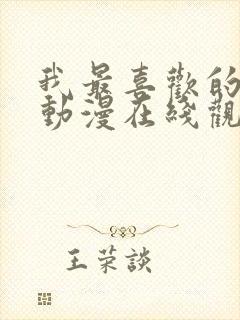 我最喜歡的
動漫在綫觀
王荣談